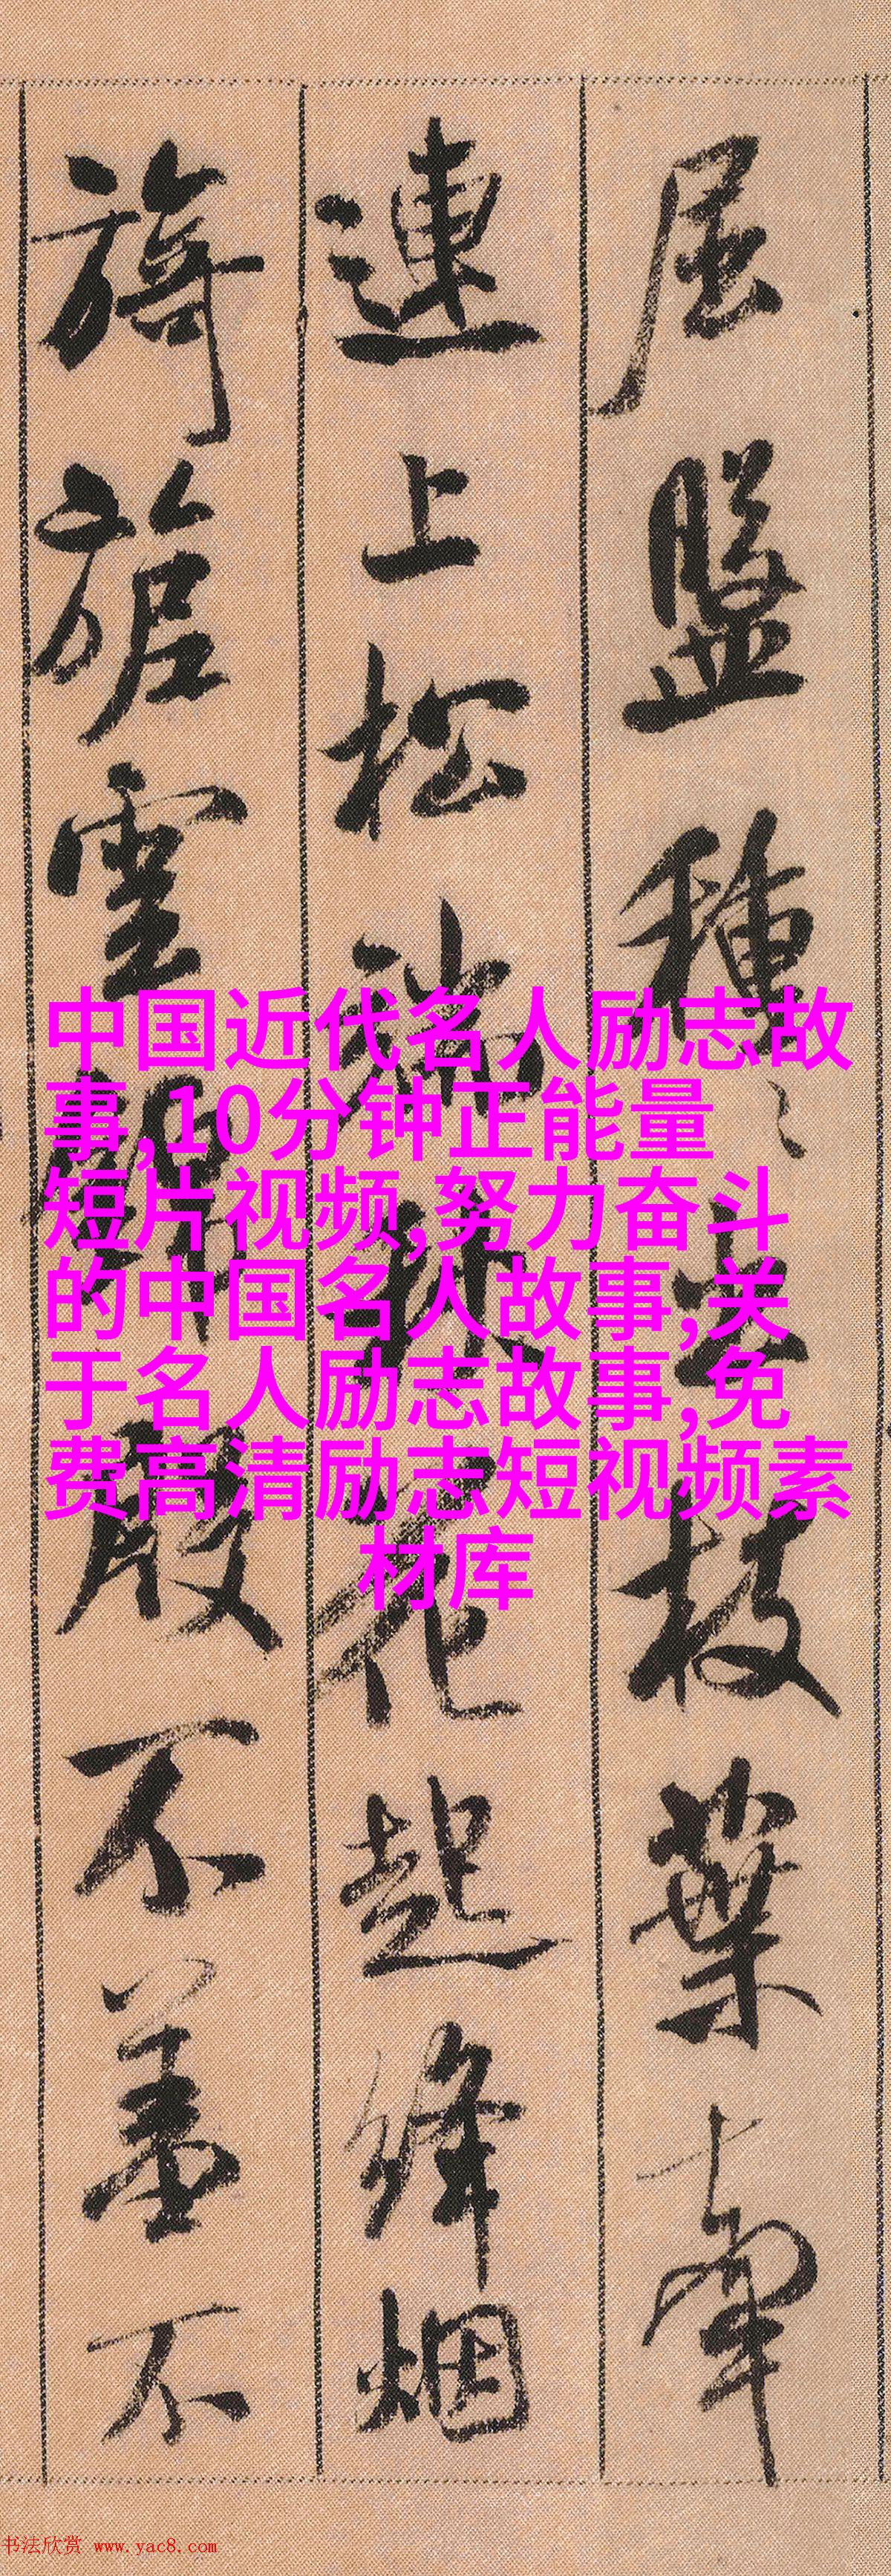 屈盤種〻出枝葉牽
連上松端秋花起絳烟
旖旎雲錦殷不羞不
中国近代名人励志故
事,10分钟正能量
短片视频,努力奋斗
的中国名人故事,关
于名人励志故事,免
费高清励志短视频素
材库
书法欣赏 www.yac8.com